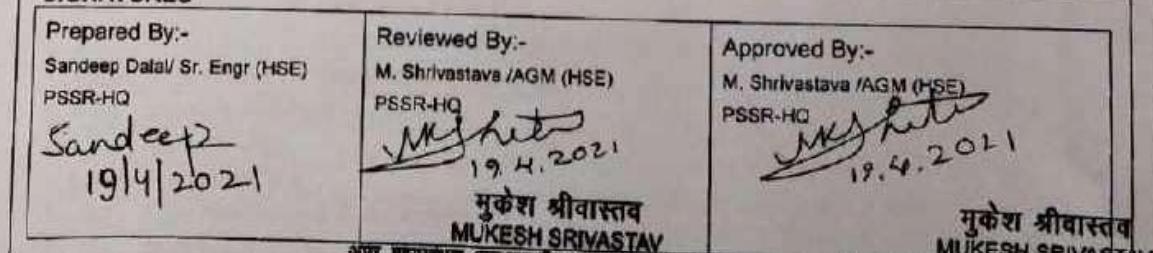 SIGNATURES
Prepared By:-
Sandeep Dalal/ Sr. Engr (HSE)
PSSR-HQ
Sandeep
19/4/2021
Reviewed By:-
M. Shrivastava /AGM (HSE)
PSSR-HQ
19.4.2021
मुकेश श्रीवास्तव
MUKESH SRIVASTAV
Approved By:-
M. Shrivastava /AGM (HSE)
PSSR-HQ
19.4.2021
मुकेश श्रीवास्तव
MUKESH SRIVASTAV